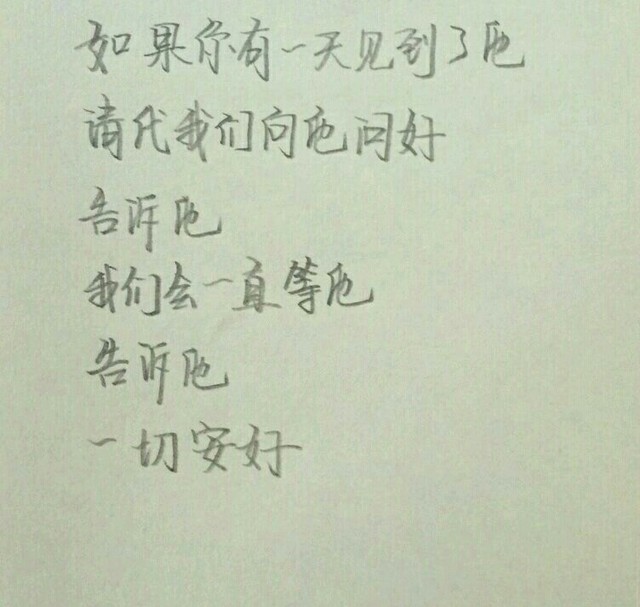 如果你有一天见到了他
请代我们向他问好
告诉他
我们会一直等他
告诉他
一切安好